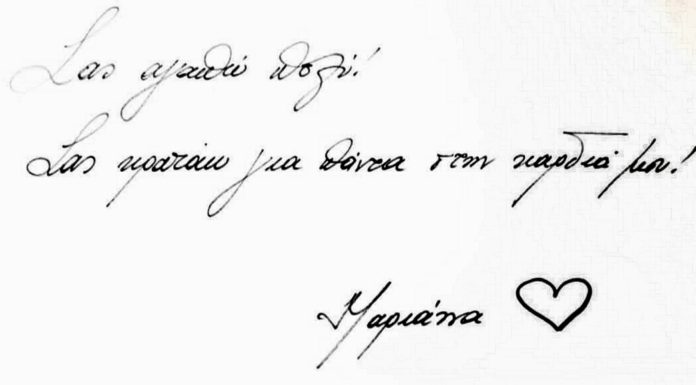 Σας αγαπώ πολύ!
Σας κρατάω για πάντα στην καρδιά μου!
Μαριάννα ♡